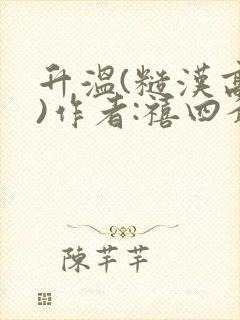 升溫(糙漢高
)作者:禧四
陳芊芊